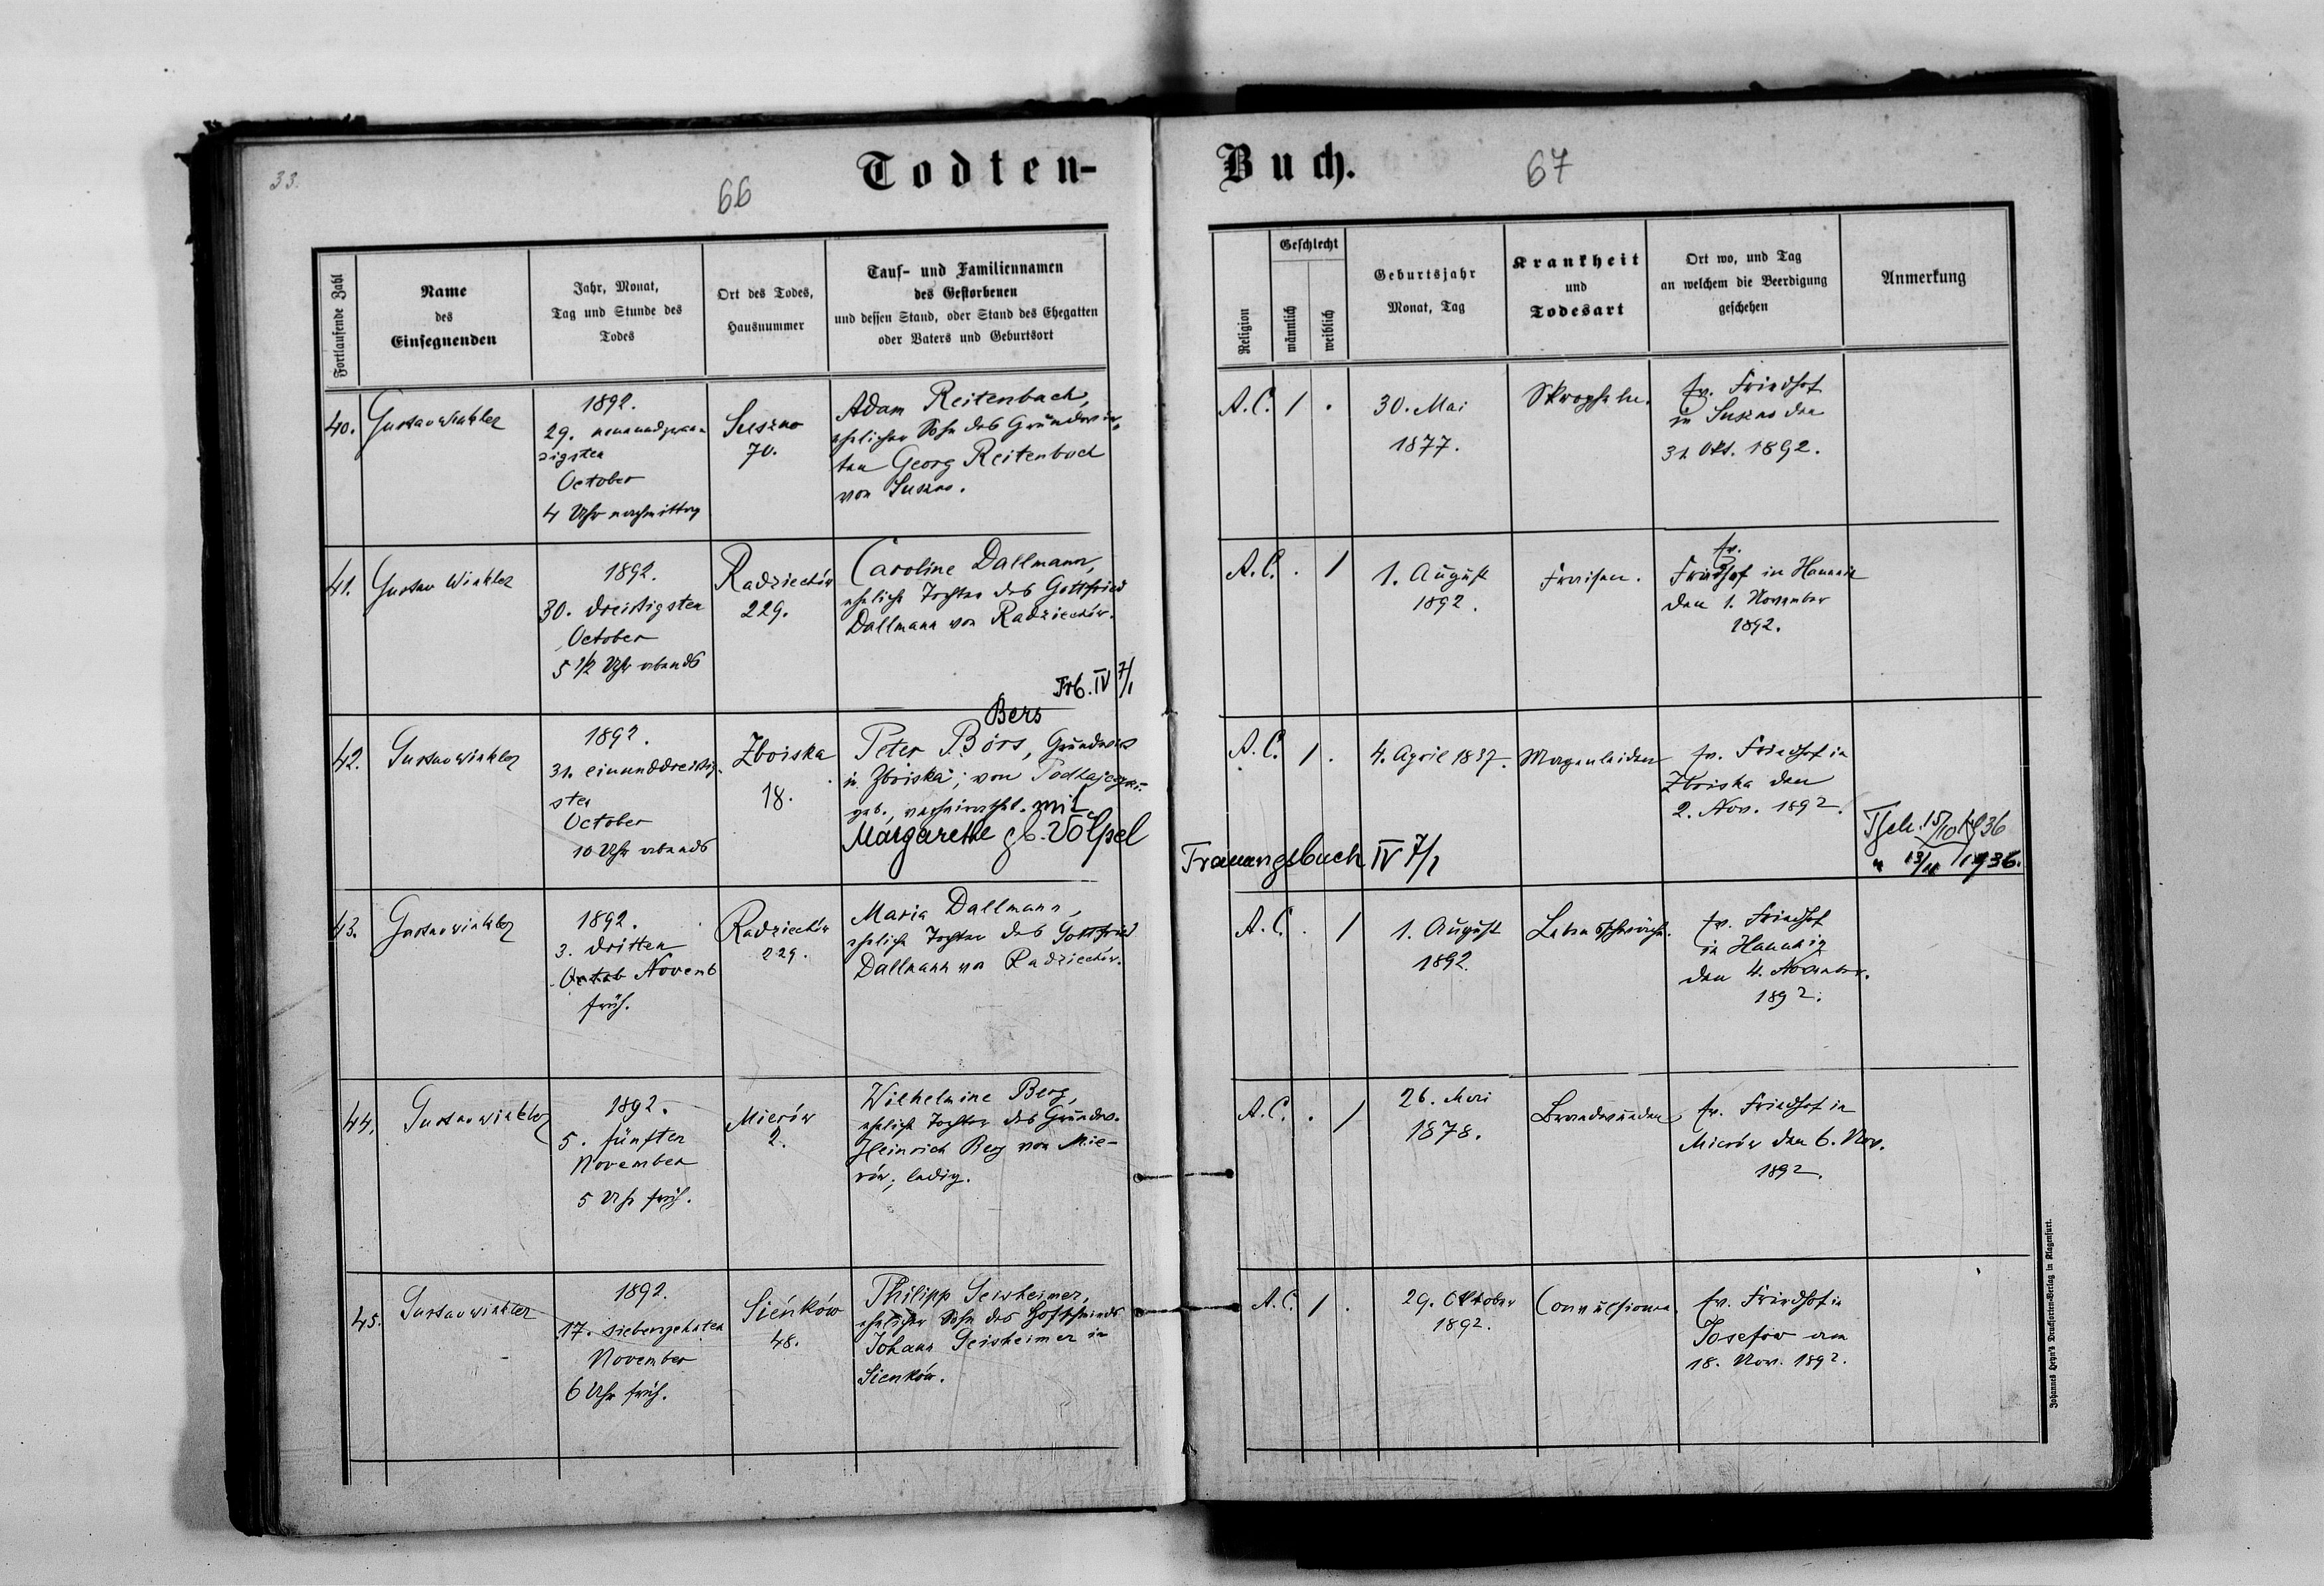 33.
66
Todten-
Buch.
67
Fortlaufende Zahl
Name
des
Einsegnenden
Jahr, Monat,
Tag und Stunde des
Todes
Ort des Todes,
Hausnummer
Tauf- und Familiennamen
des Gestorbenen
und dessen Stand, oder Stand des Ehegatten
oder Vaters und Geburtsort
Religion
Geschlecht
männlich
weiblich
Geburtsjahr
Monat, Tag
Krankheit
und
Todesart
Ort wo, und Tag
an welchem die Beerdigung
geschehen
Anmerkung
40.
Gustav Winkler
1892.
29. neunundzwan-
zigsten
October
4 Uhr nachmittag
Suszno
70.
Adam Reitenbach,
ehelicher Sohn des Grundwir-
ten Georg Reitenbach
von Suszno.
A.C.
1
.
30. Mai
1877.
ev. Friedhof
in Suszno den
31. Okt. 1892.
41.
Gustav Winkler
1892.
30. dreißigsten
October
5 1/2 Uhr abends
Radziechów
229.
Caroline Dallmann,
eheliche Tochter des Gottfried
Dallmann von Radziechów.
A.C.
.
1
1. August
1892.
Fraisen.
ev.
Friedhof in Hanunin
den 1. November
1892.
Trb. IV 7/1
42.
Gustav Winkler
1892.
31. einunddreißig-
sten
October
10 Uhr abends
Zboiska
18.
Bers
Peter Börs, Grundwirt
in Zboiska; von
geb., verheirathet. mit
Margarethe gb. Völpel
A.C.
1
.
4. April 1837.
Magenleiden
ev. Friedhof in
Zboiska den
2. Nov. 1892.
Trauungsbuch IV 7/1
Tsch. 15/10 1936
" 13/11 1936.
43.
Gustav Winkler
1892.
3. dritten
Octob Novemb
früh.
Radziechów
229.
Maria Dallmann,
eheliche Tochter des Gottfried
Dallmann von Radziechów.
A.C.
.
1
1. August
1892.
Lebensschwäche.
ev. Friedhof
in Hanunin
den 4. November.
1892.
44.
Gustav Winkler
1892.
5. fünften
November
5 Uhr früh.
Mierów
2.
Wilhelmine Berg,
eheliche Tochter des Grundw.
Heinrich Berg von Mie-
rów, ledig.
A.C.
.
1
26. Mai
1878.
Brandwunden
ev. Friedhof in
Mierów den 6. Nov.
1892.
45.
Gustav Winkler
1892.
17. siebenzehnten
November
6 Uhr früh.
Sieńków
48.
Philipp Geisheimer,
ehelicher Sohn des
Johann Geisheimer in
Sienków.
A.C.
1
.
29. Oktober
1892.
Convulsionen.
ev. Friedhof in
Josefów am
18. Nov. 1892.
Johannes Heyn's Drucksorten-Verlag in Klagenfurt.